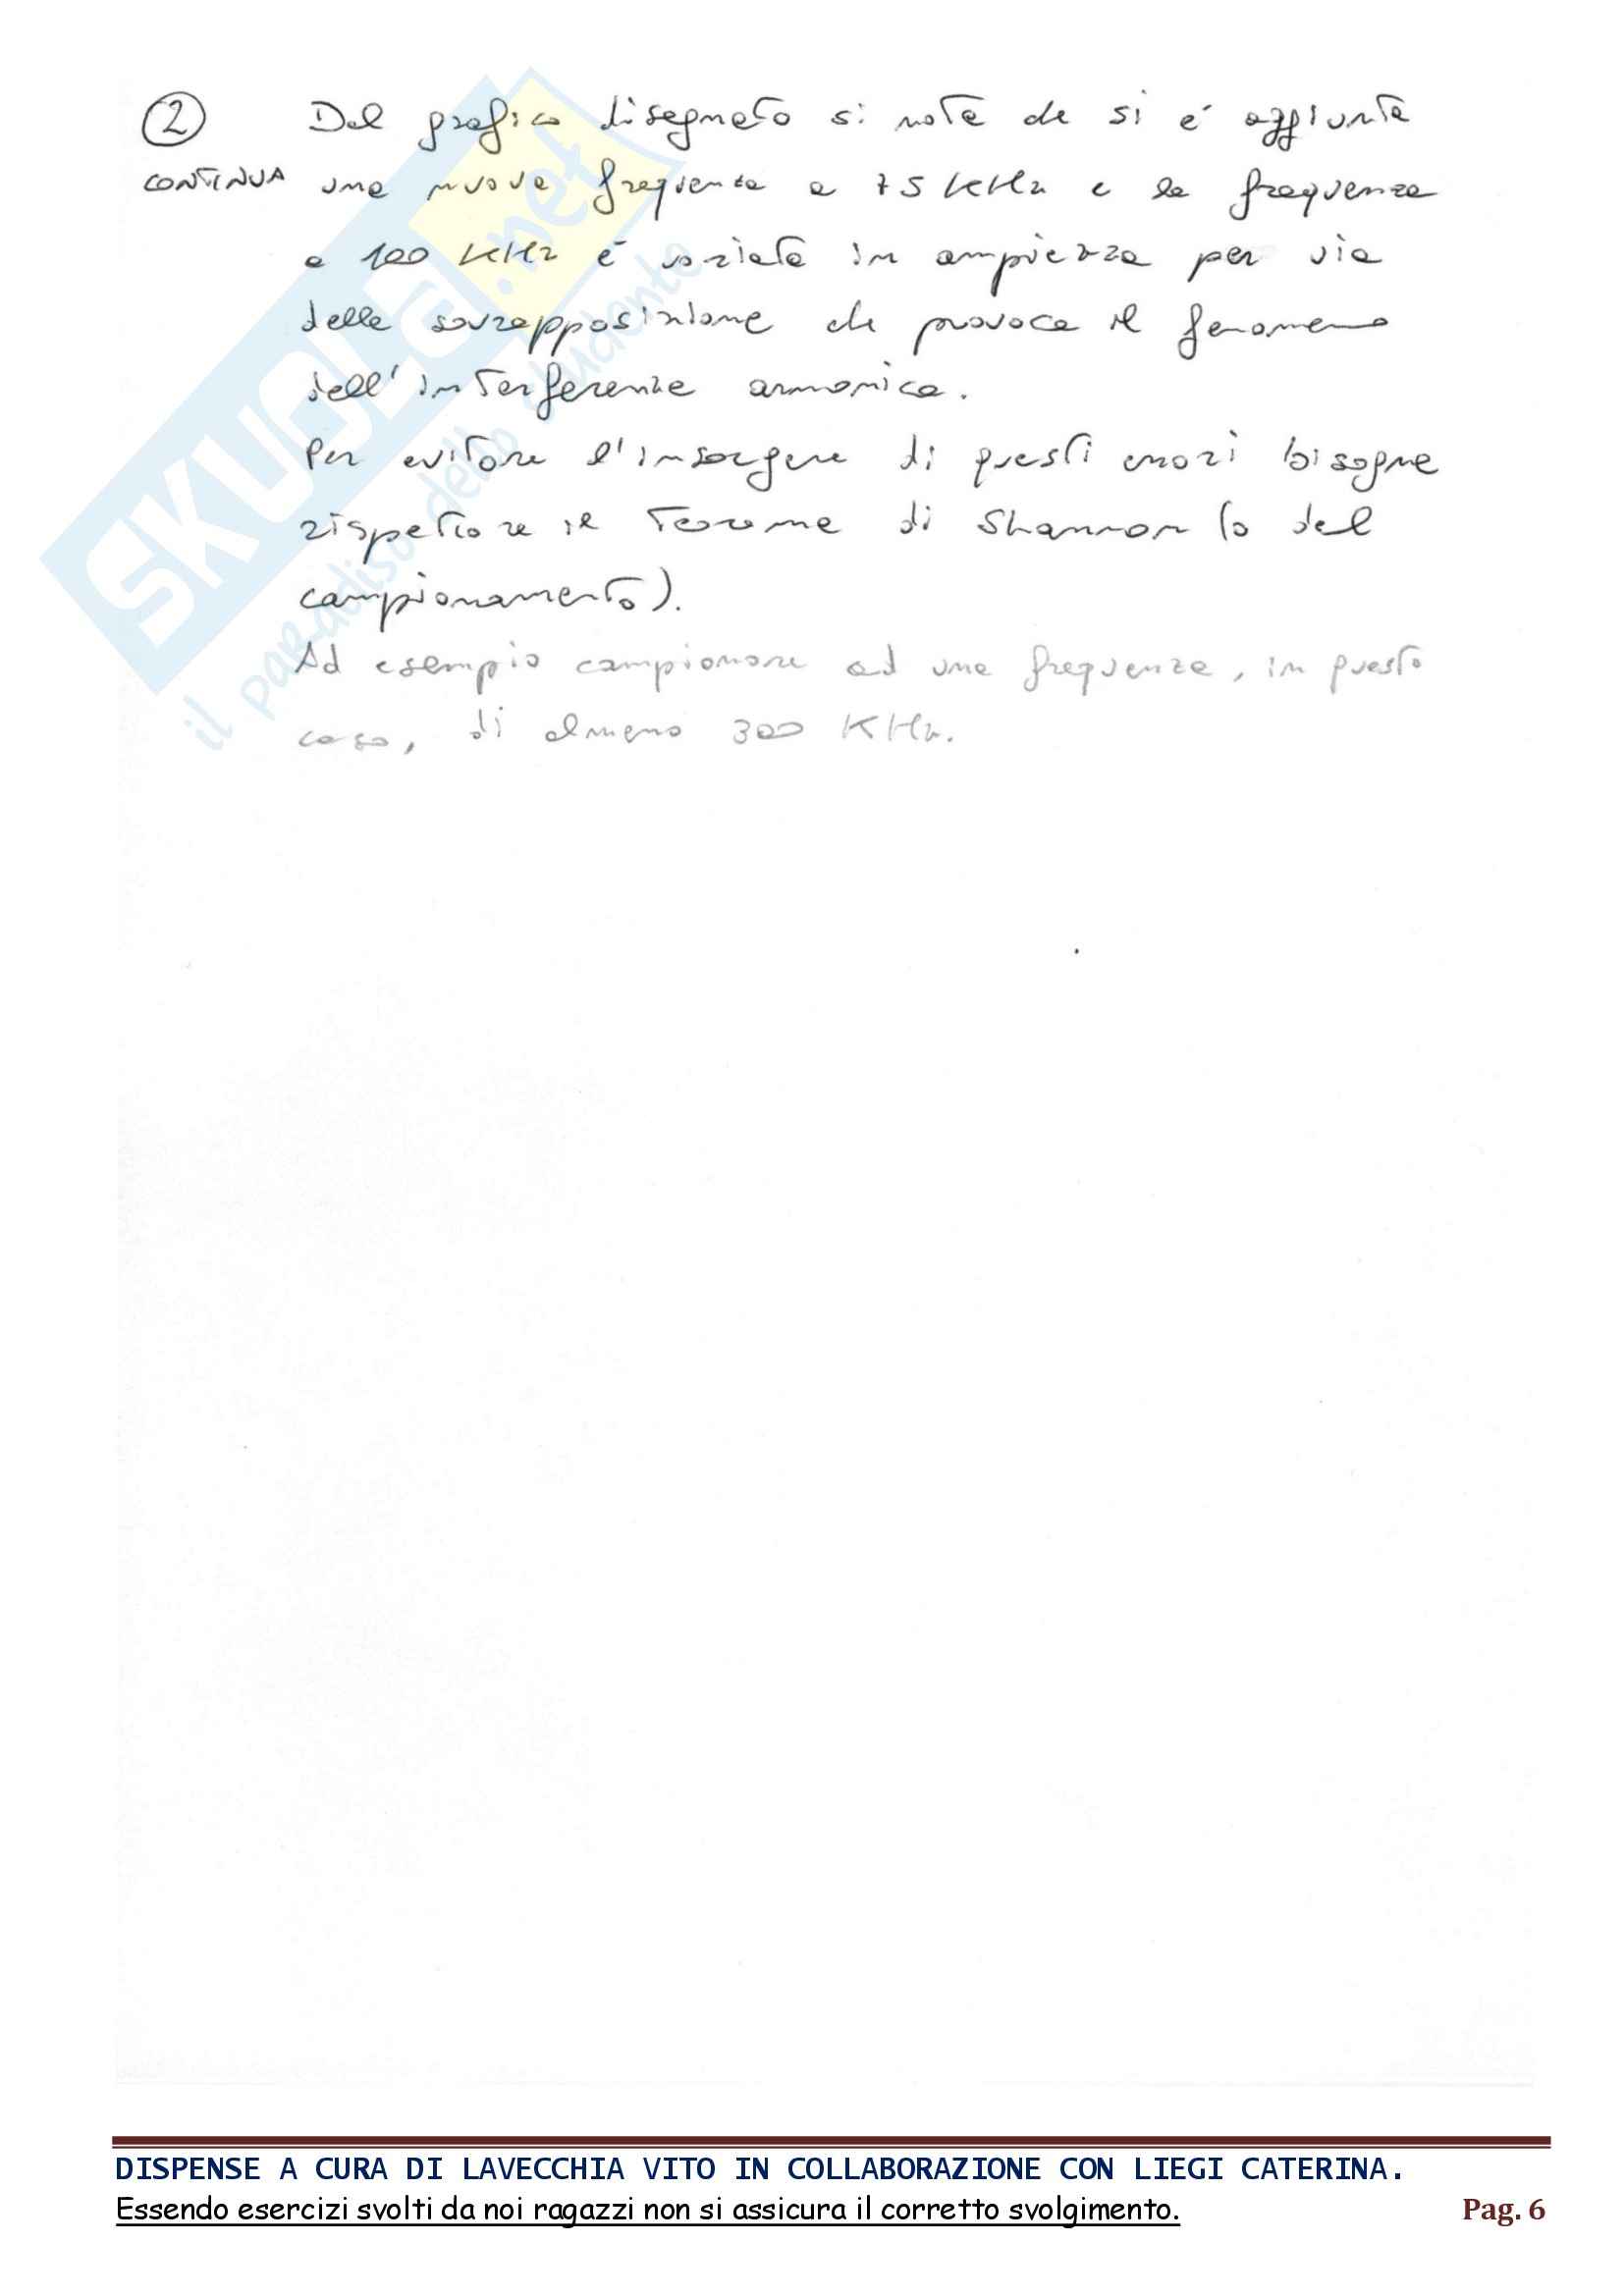 ② Dal grafico disegnato si nota che si è aggiunta
CONTINUA una nuova frequenza a 75 KHz e la frequenza
a 100 KHz è variata in ampiezza per via
della sovrapposizione che provoca il fenomeno
dell'interferenza armonica.
Per evitare l'insorgere di questi errori bisogna
rispettare il Teorema di Shannon (o del
campionamento).
Ad esempio campionare ad una frequenza, in questo
caso, di almeno 300 KHz.
SKUOLA.net
il paradiso dello studente
DISPENSE A CURA DI LAVECCHIA VITO IN COLLABORAZIONE CON LIEGI CATERINA.
Essendo esercizi svolti da noi ragazzi non si assicura il corretto svolgimento. Pag. 6